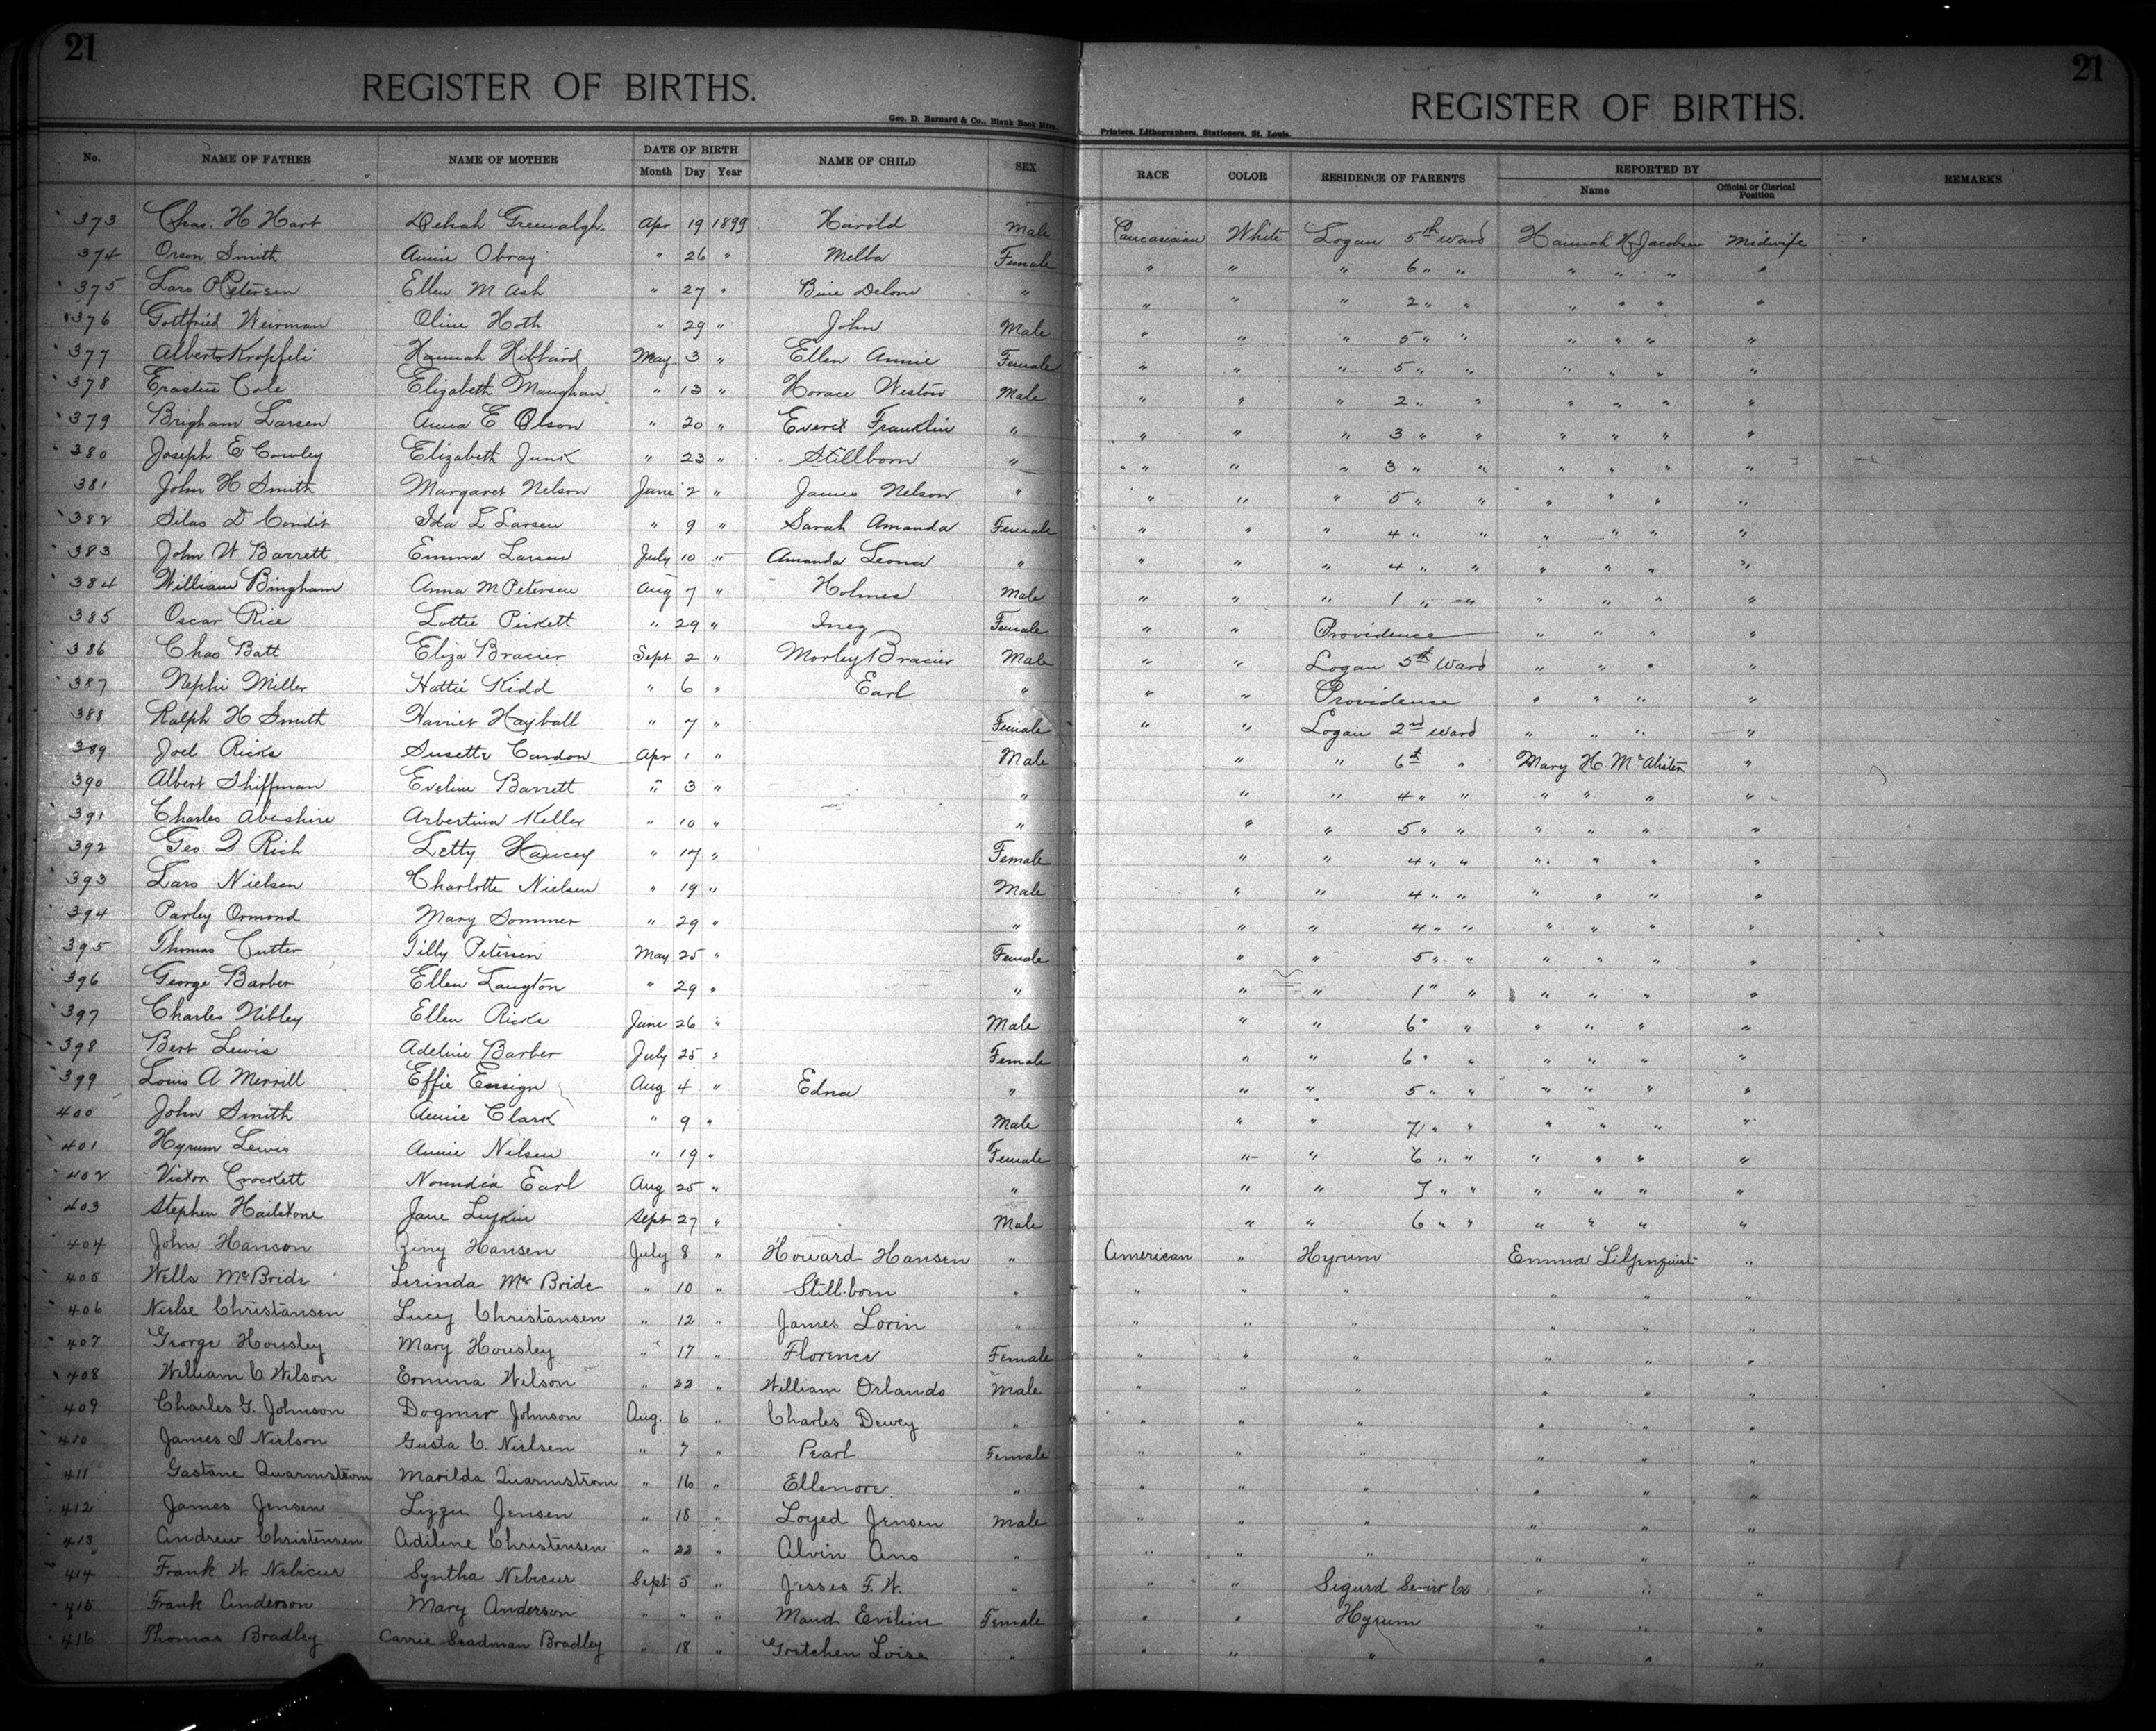 21
REGISTER OF BIRTHS.
Geo. D. Barnard & Co., Blank Book Mfrs.
21
REGISTER OF BIRTHS.
Printers, Lithographers, Stationers, St. Louis.
No. NAME OF FATHER NAME OF MOTHER DATE OF BIRTH Month Day Year NAME OF CHILD SEX RACE COLOR RESIDENCE OF PARENTS REPORTED BY Name Official or Clerical Position REMARKS
373 Chas. H Hart Apr 19 1899 Harold Male Caucasian White Logan 5th Ward Hannah H Jacobsen Midwife
374 Orson Smith Annie Obray " 26 " Melba Female " " " 6 " " " " " "
375 Lars Petersen Ellen M Ash " 27 " " " " " 2 " " " " " "
376 Gottfried Weirman Oline Hoth " 29 " John Male " " " 5 " " " " " "
377 Albert Kropfeli Hannah Hibbard May 3 " Ellen Annie Female " " " 5 " " " " " "
378 Erastus Cole Elizabeth Maughan " 13 " Horace Weston Male " " " 2 " " " " " "
379 Brigham Larsen Anna E Olson " 20 " Everet Franklin " " " " 3 " " " " " "
380 Joseph E Cowley Elizabeth Junk " 23 " Stillborn " " " " 3 " " " " " "
381 John H Smith Margaret Nelson June 2 " James Nelson " " " " 5 " " " " " "
382 Silas D Condit Ida L Larsen " 9 " Sarah Amanda Female " " " 4 " " " " " "
383 John W Barrett Emma Larsen July 10 " Amanda Leona " " " " 4 " " " " " "
384 William Bingham Anna M Petersen Aug 7 " Holmes Male " " " 1 " " " " " "
385 Oscar Rice Lottie Pickett " 29 " Inez Female " " Providence " " " "
386 Chas Batt Eliza Bracier Sept 2 " Morley Bracier Male " " Logan 5th Ward " " " "
387 Nephi Miller Hattie Kidd " 6 " Earl " " " Providence " " " "
388 Ralph H Smith Harriet Hayball " 7 " Female " " Logan 2nd Ward " " " "
389 Joel Ricks Susette Cardon Apr 1 " Male " " 6th " Mary H McAlister "
390 Albert Shiffman Eveline Barrett " 3 " " " " 4 " " " " " "
391 Charles Abenshire Arbertina Keller " 10 " " " " 5 " " " " " "
392 Geo. Q Rich Letty Hancey " 17 " Female " " 4 " " " " " "
393 Lars Nielsen Charlotte Nielsen " 19 " Male " " 4 " " " " " "
394 Parley Ormond Mary Sommer " 29 " " " " 4 " " " " " "
395 Thomas Cutter Tilly Petersen May 25 " Female " " 5 " " " " " "
396 George Barber Ellen Langton " 29 " " " " 1 " " " " " "
397 Charles Nibley Ellen Ricks June 26 " Male " " 6 " " " " " "
398 Bert Lewis Adeline Barber July 25 " Female " " 6 " " " " " "
399 Louis A Merrill Effie Ensign Aug 4 " Edna " " " 5 " " " " " "
400 John Smith Annie Clark " 9 " Male " " 7 " " " " " "
401 Hyrum Lewis Annie Nilsen " 19 " Female " " 6 " " " " " "
402 Victor Crockett Noundia Earl Aug 25 " " " " 7 " " " " " "
403 Stephen Hailstone Jane Lufkin Sept 27 " Male " " 6 " " " " " "
404 John Hanson Ziny Hansen July 8 " Howard Hansen " American " Hyrum Emma Liljenquist "
405 Wells McBride Lerinda McBride " 10 " Still-born " " " " " " "
406 Nielse Christansen Lucy Christansen " 12 " James Lorin " " " " " " "
407 George Housley Mary Housley " 17 " Florence Female " " " " " "
408 William C Wilson Emmina Wilson " 22 " William Orlando Male " " " " " "
409 Charles G. Johnson Dogmer Johnson Aug. 6 " Charles Dewey " " " " " " "
410 James I Nielson Gusta C Nielsen " 7 " Pearl Female " " " " " "
411 Gastane Quarmstrom Marilda Quarmstrom " 16 " Ellenore " " " " " " "
412 James Jensen Lizzie Jensen " 18 " Loyed Jensen Male " " " " " "
413 Andrew Christensen Adiline Christensen " 22 " Alvin Ano " " " " " " "
414 Frank W. Nebicur Syntha Nebicur Sept 5 " Jesses F. W. " " " Sigurd Sevier Co " " "
415 Frank Anderson Mary Anderson " " " Maud Eviline Female " " Hyrum " " "
416 Thomas Bradley Carrie Seadman Bradley " 18 " Gretchen Loise " " " " " " "